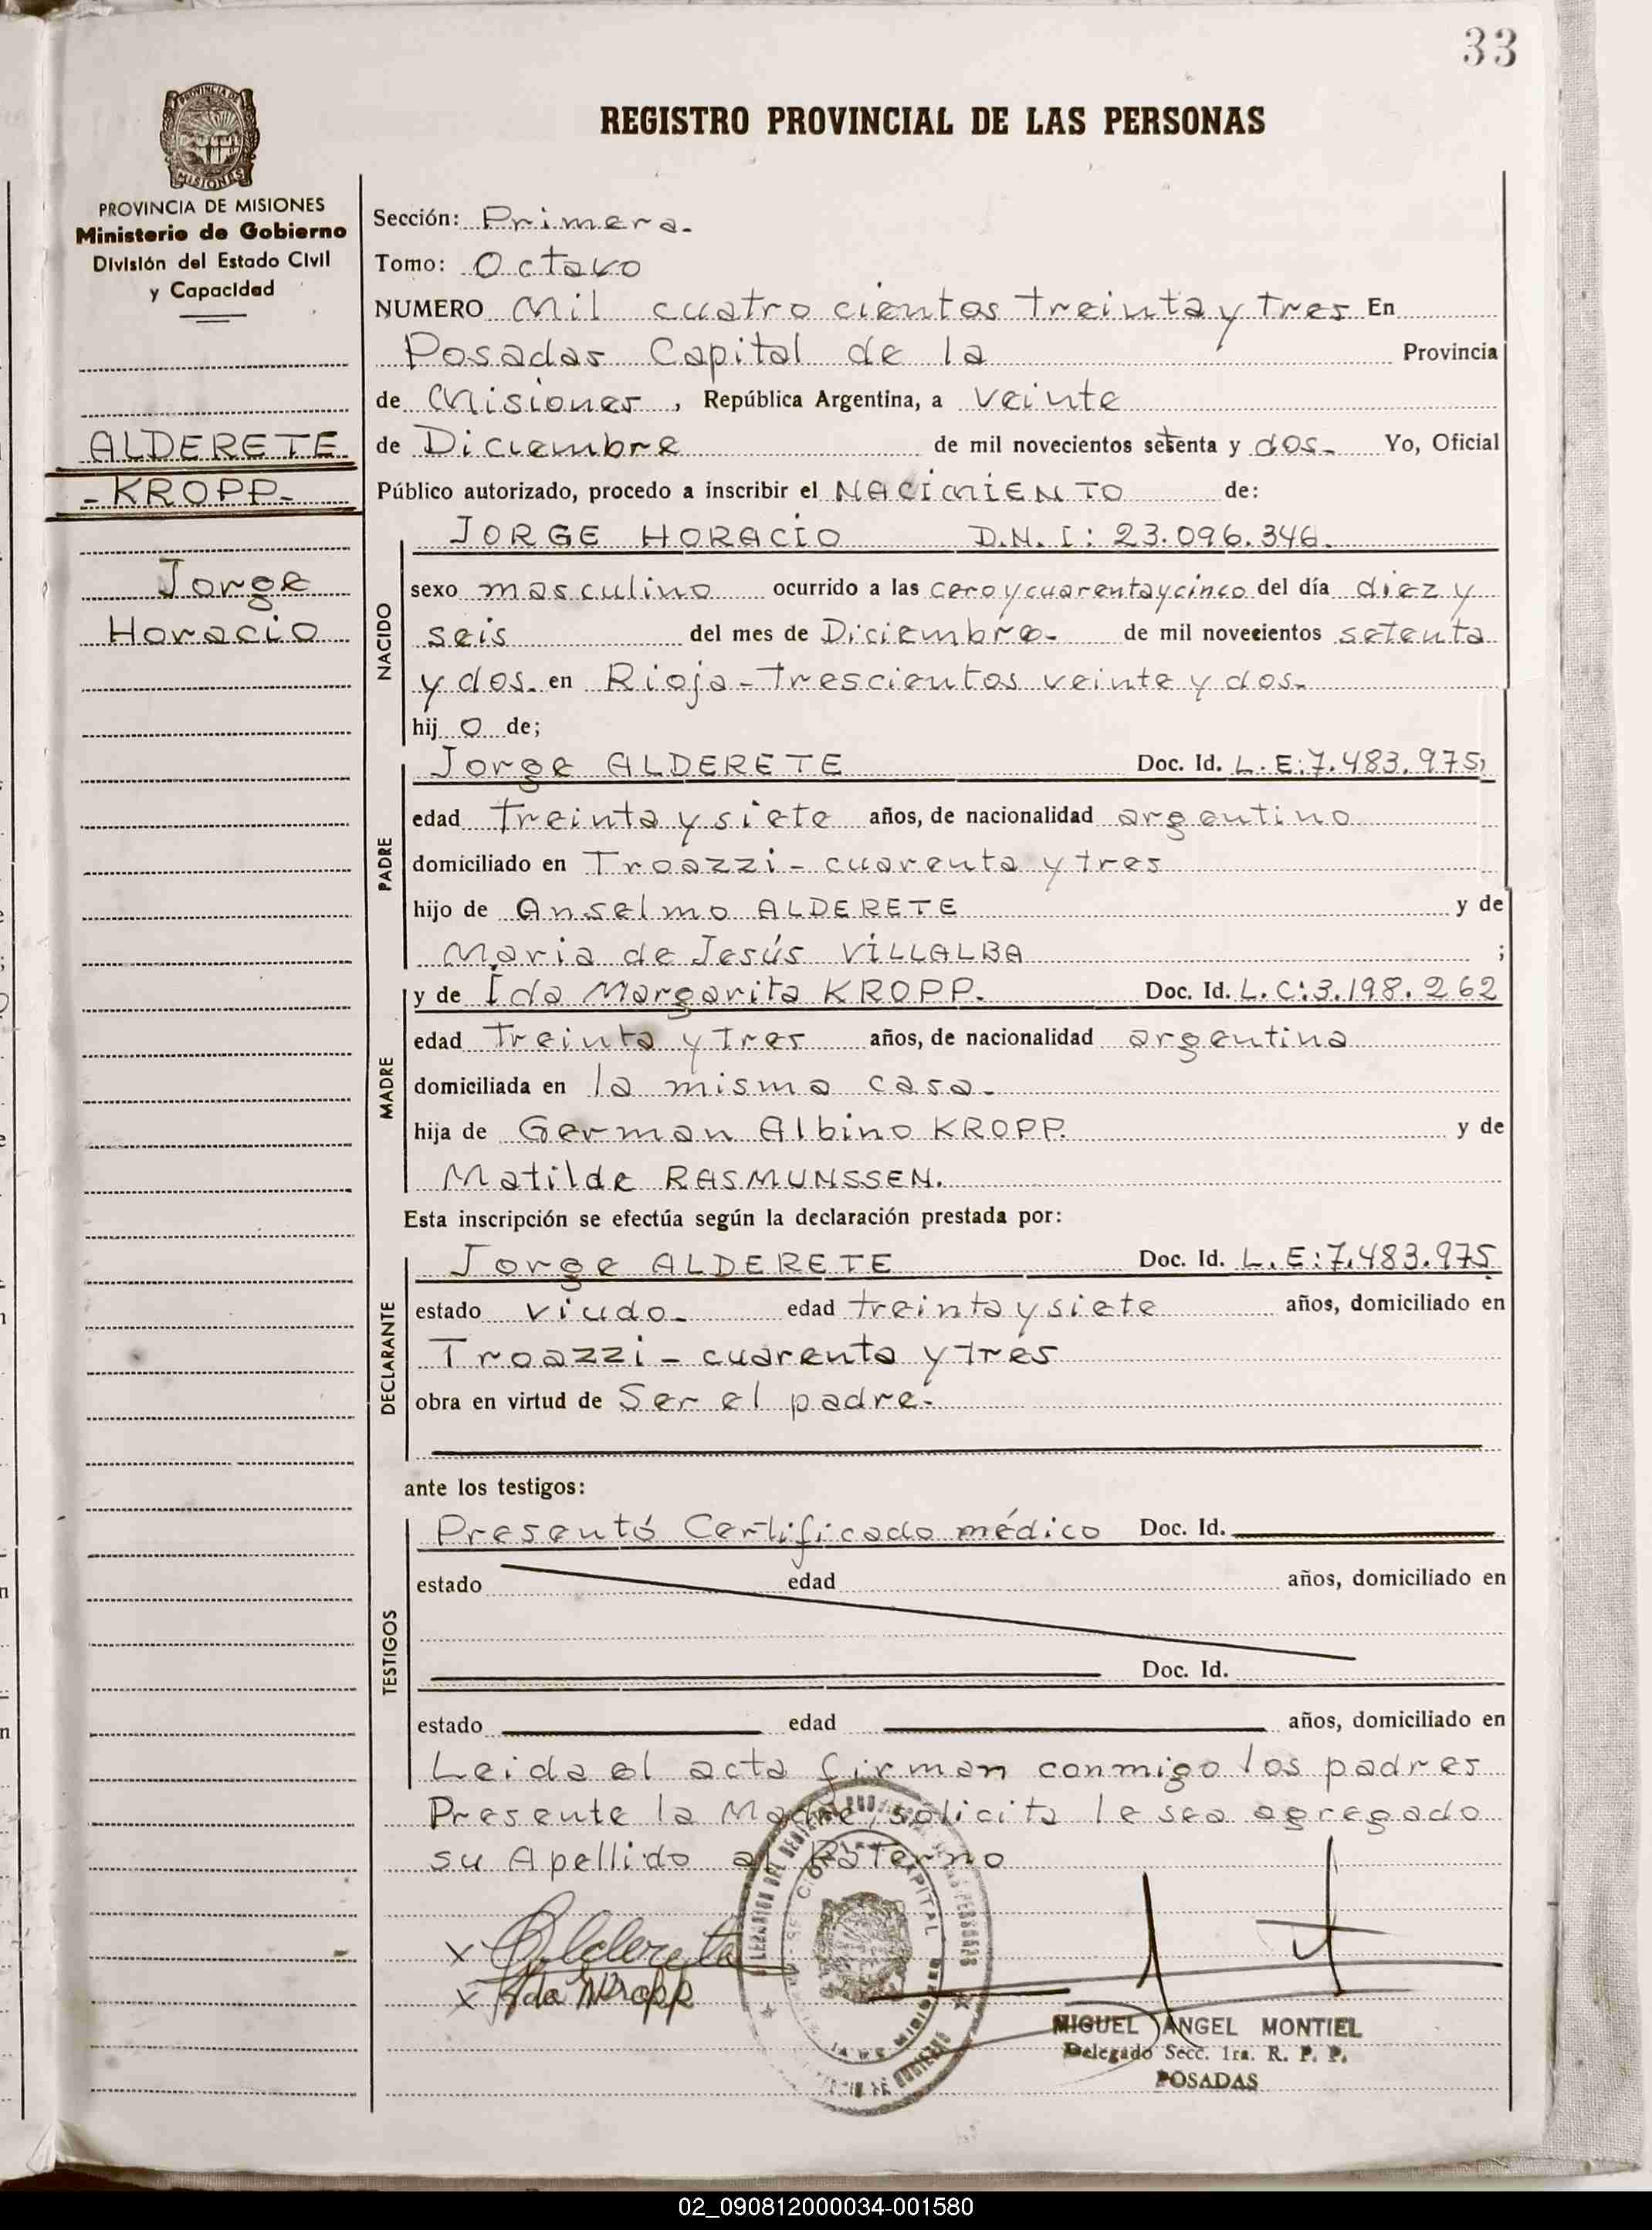 33
REGISTRO PROVINCIAL DE LAS PERSONAS
PROVINCIA DE MISIONES
MISIONES
PROVINCIA DE MISIONES
Ministerio de Gobierno
División del Estado Civil
y Capacidad
ALDERETE
- KROPP-
Jorge
Horacio
Sección: Primera.
Tomo: Octavo
NUMERO Mil cuatro cientos treinta y tres En
Posadas Capital de la Provincia
de Misiones, República Argentina, a veinte
de Diciembre de mil novecientos setenta y dos. Yo, Oficial
Público autorizado, procedo a inscribir el NACIMIENTO de:
NACIDO
JORGE HORACIO D.N.I: 23.096.346.
sexo masculino ocurrido a las cero y cuarenta y cinco del día diez y
seis del mes de Diciembre. de mil novecientos setenta
y dos. en Rioja - trescientos veinte y dos.
hij o de;
PADRE
Jorge ALDERETE Doc. Id. L.E:7.483.975,
edad treinta y siete años, de nacionalidad argentino
domiciliado en Troazzi - cuarenta y tres
hijo de Anselmo ALDERETE y de
Maria de Jesús VILLALBA ;
MADRE
y de Ida Margarita KROPP. Doc. Id. L.C:3.198.262
edad treinta y tres años, de nacionalidad argentina
domiciliada en la misma casa.
hija de German Albino KROPP. y de
Matilde RASMUNSSEN.
Esta inscripción se efectúa según la declaración prestada por:
DECLARANTE
Jorge ALDERETE Doc. Id. L.E:7.483.975
estado viudo. edad treinta y siete años, domiciliado en
Troazzi - cuarenta y tres
obra en virtud de Ser el padre.
ante los testigos:
TESTIGOS
Presentó Certificado médico Doc. Id.
estado edad años, domiciliado en
Doc. Id.
estado edad años, domiciliado en
Leida el acta firman conmigo los padres
Presente la Madre, solicita le sea agregado
su Apellido al Paterno
x Alderete
x Ida M Kropp
MIGUEL ANGEL MONTIEL
Delegado Secc. 1ra. R. P. P.
POSADAS
02_090812000034-001580